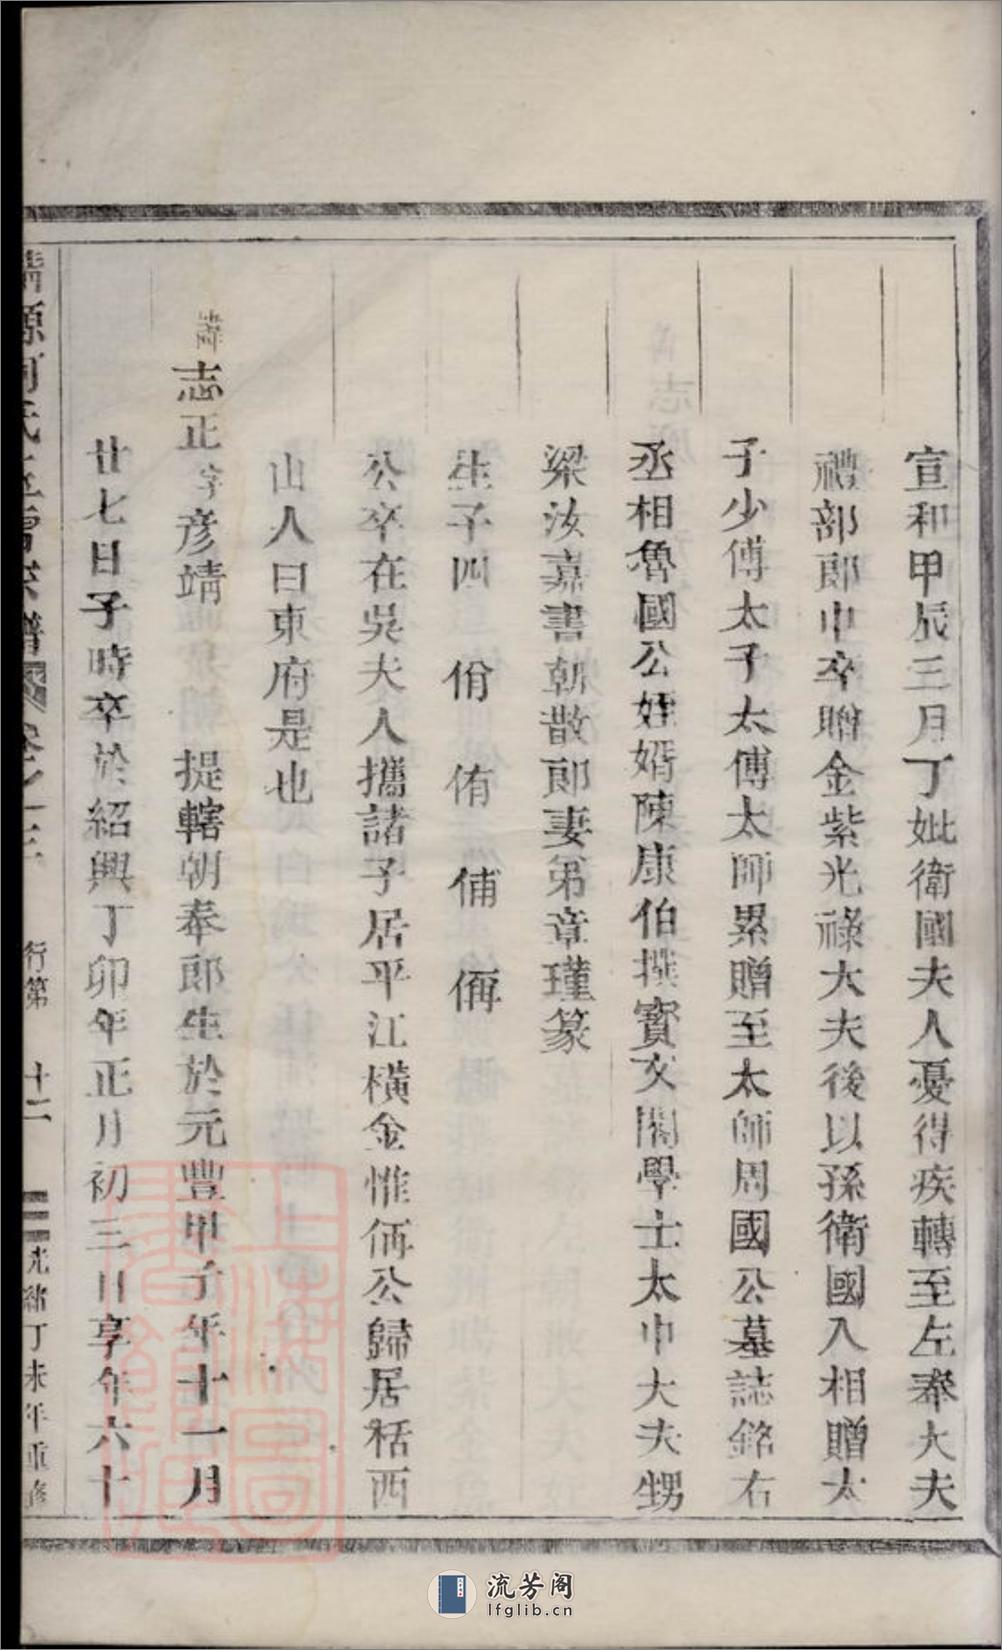 宣和甲辰三月丁妣衛國夫人憂得疾轉至左奉大夫
禮部郎中卒贈金紫光祿大夫後以孫衛國入相贈太
子少傅太子太傅太師累贈至太師周國公墓誌銘右
丞相魯國公姪婿陳康伯撰寶文閣學士太中大夫甥
梁汝嘉書朝散郎妻弟章瑾篆
生子四 佾 侑 俌 偁
公卒在吳夫人攜諸子居平江橫金惟侢公歸居栝西
山人曰東府是也
志正字彥靖 提轄朝奉郎生於元豐甲子年十一月
廿七日子時卒於紹興丁卯年正月初三日享年六十
清源何氏 宗譜 卷之十三 行第 十二 光緒丁未年重修
上海圖書館藏
流芳阁
lfglib.cn